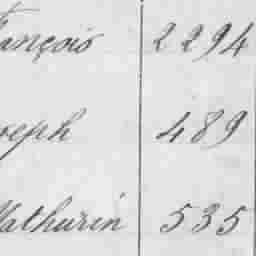 François 2294
oseph 489
Mathurin 535